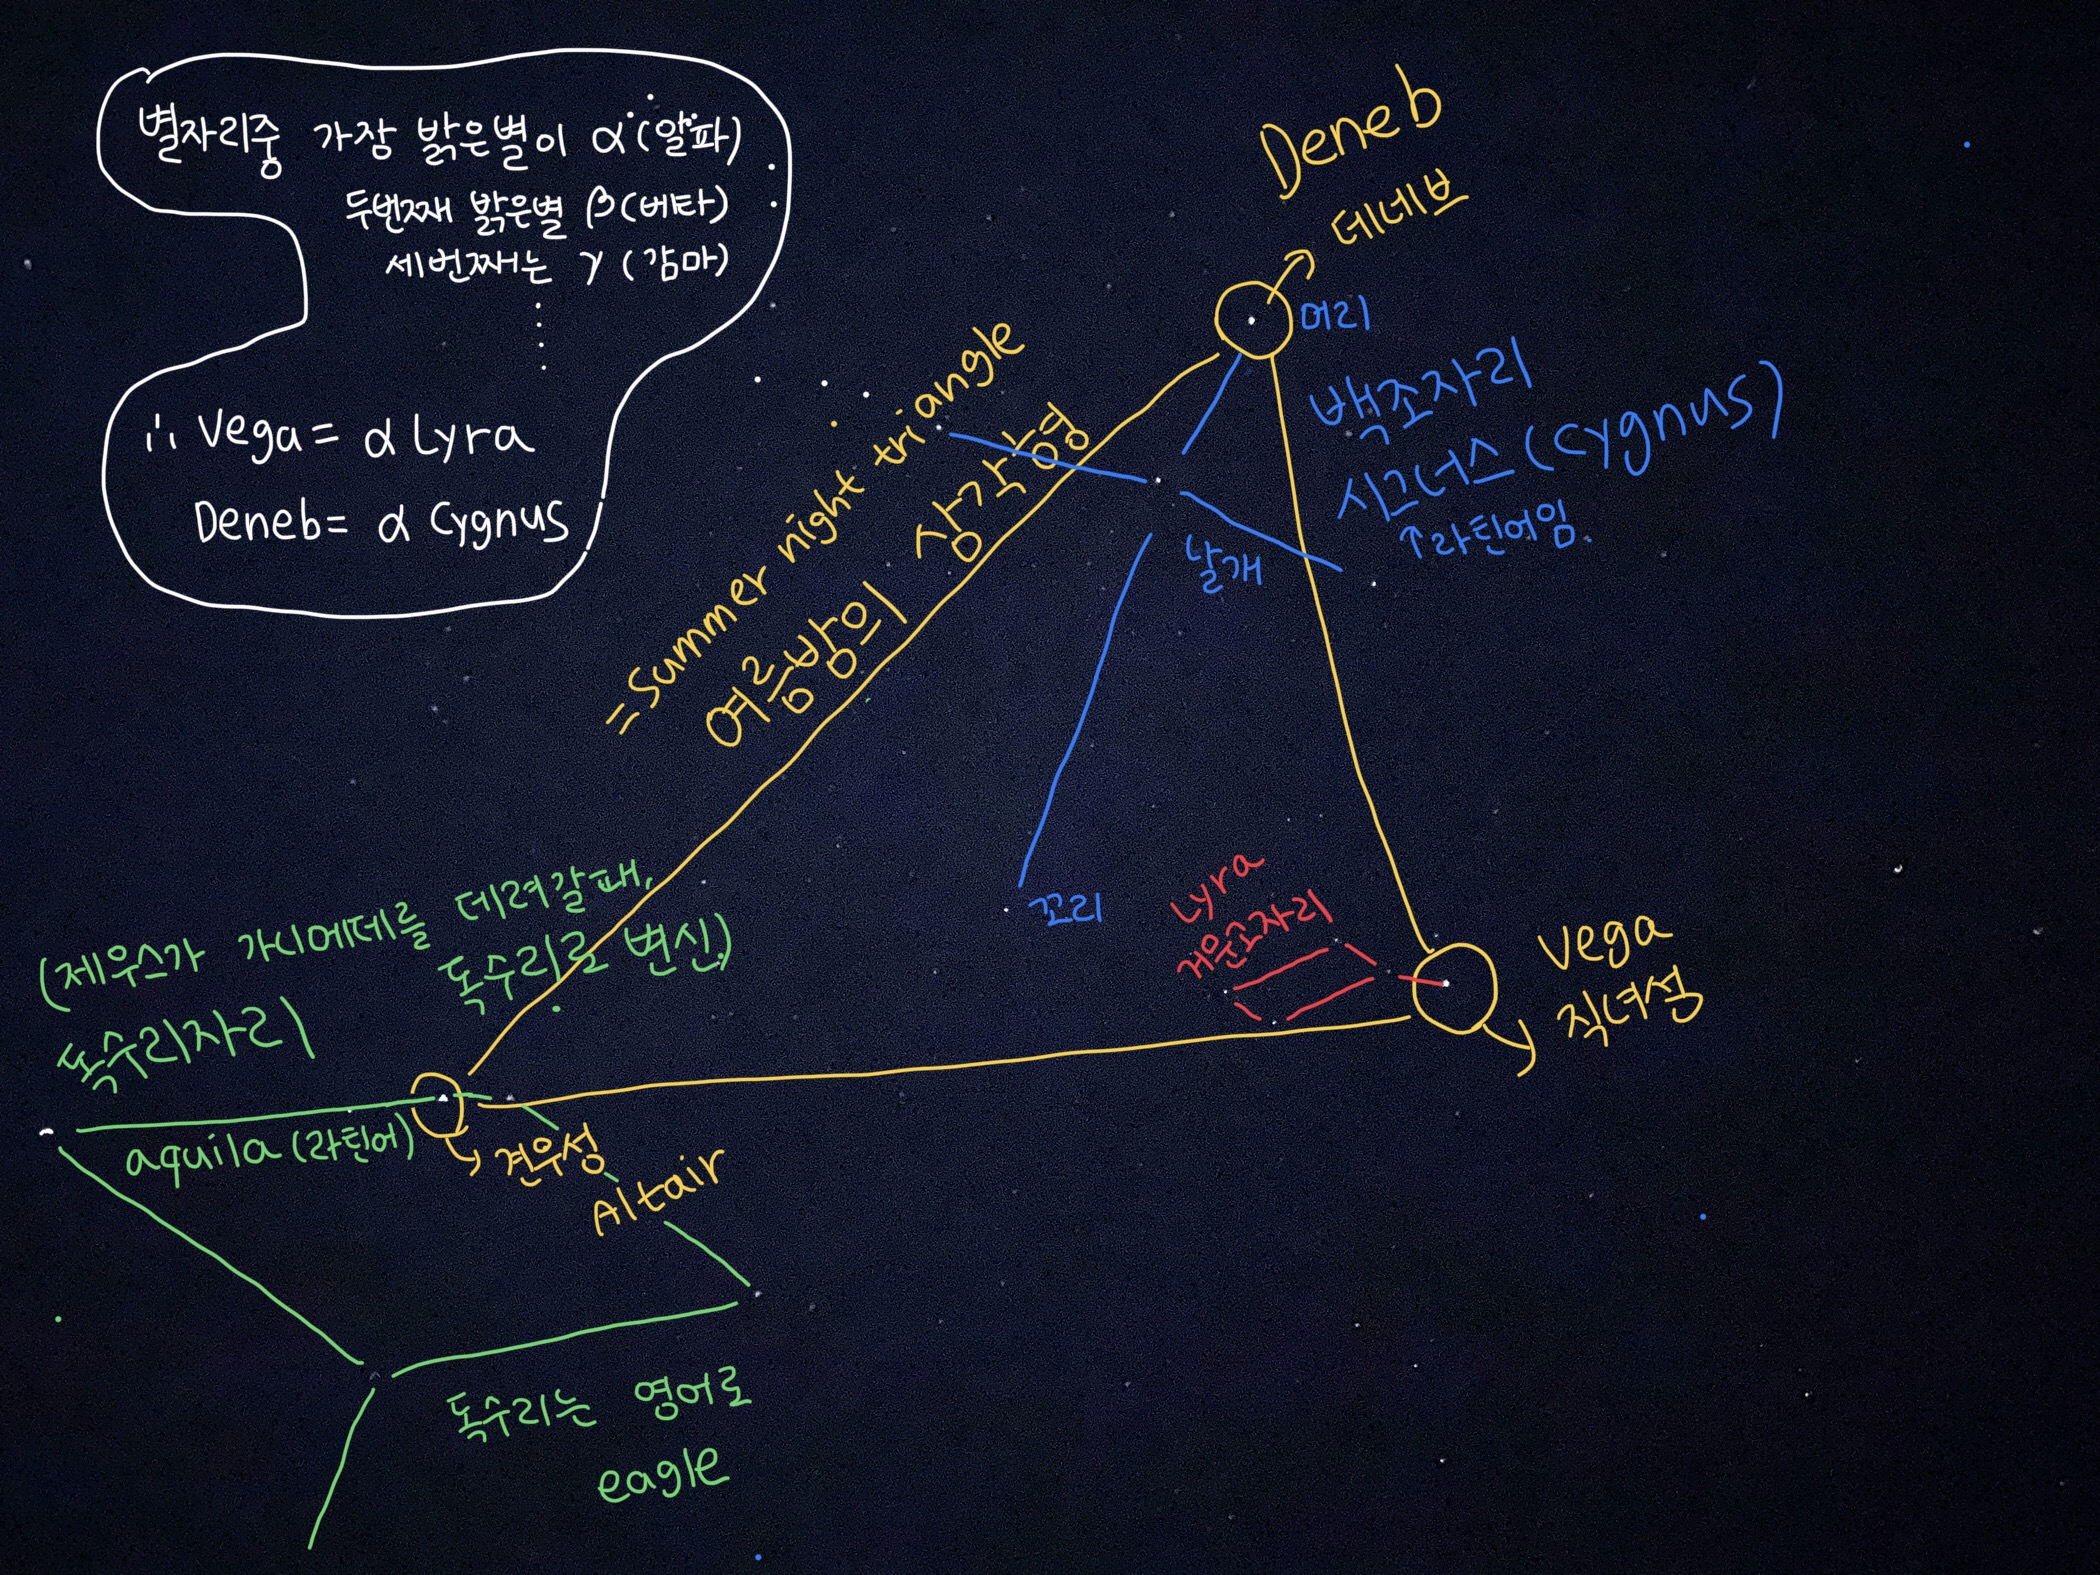 별자리중 가장 밝은별이 α(알파)
두번째 밝은별 β(베타)
세번째는 γ(감마)
∴ Vega = α Lyra
Deneb = α Cygnus
Deneb
데네브
머리
백조자리
시그너스(cygnus)
↑라틴어임.
날개
꼬리
=summer night triangle
여름밤의 삼각형
Lyra
거문고자리
Vega
직녀성
(제우스가 가니메데를 데려갈때,
독수리로 변신.)
독수리자리
aquila(라틴어)
견우성
Altair
독수리는 영어로
eagle